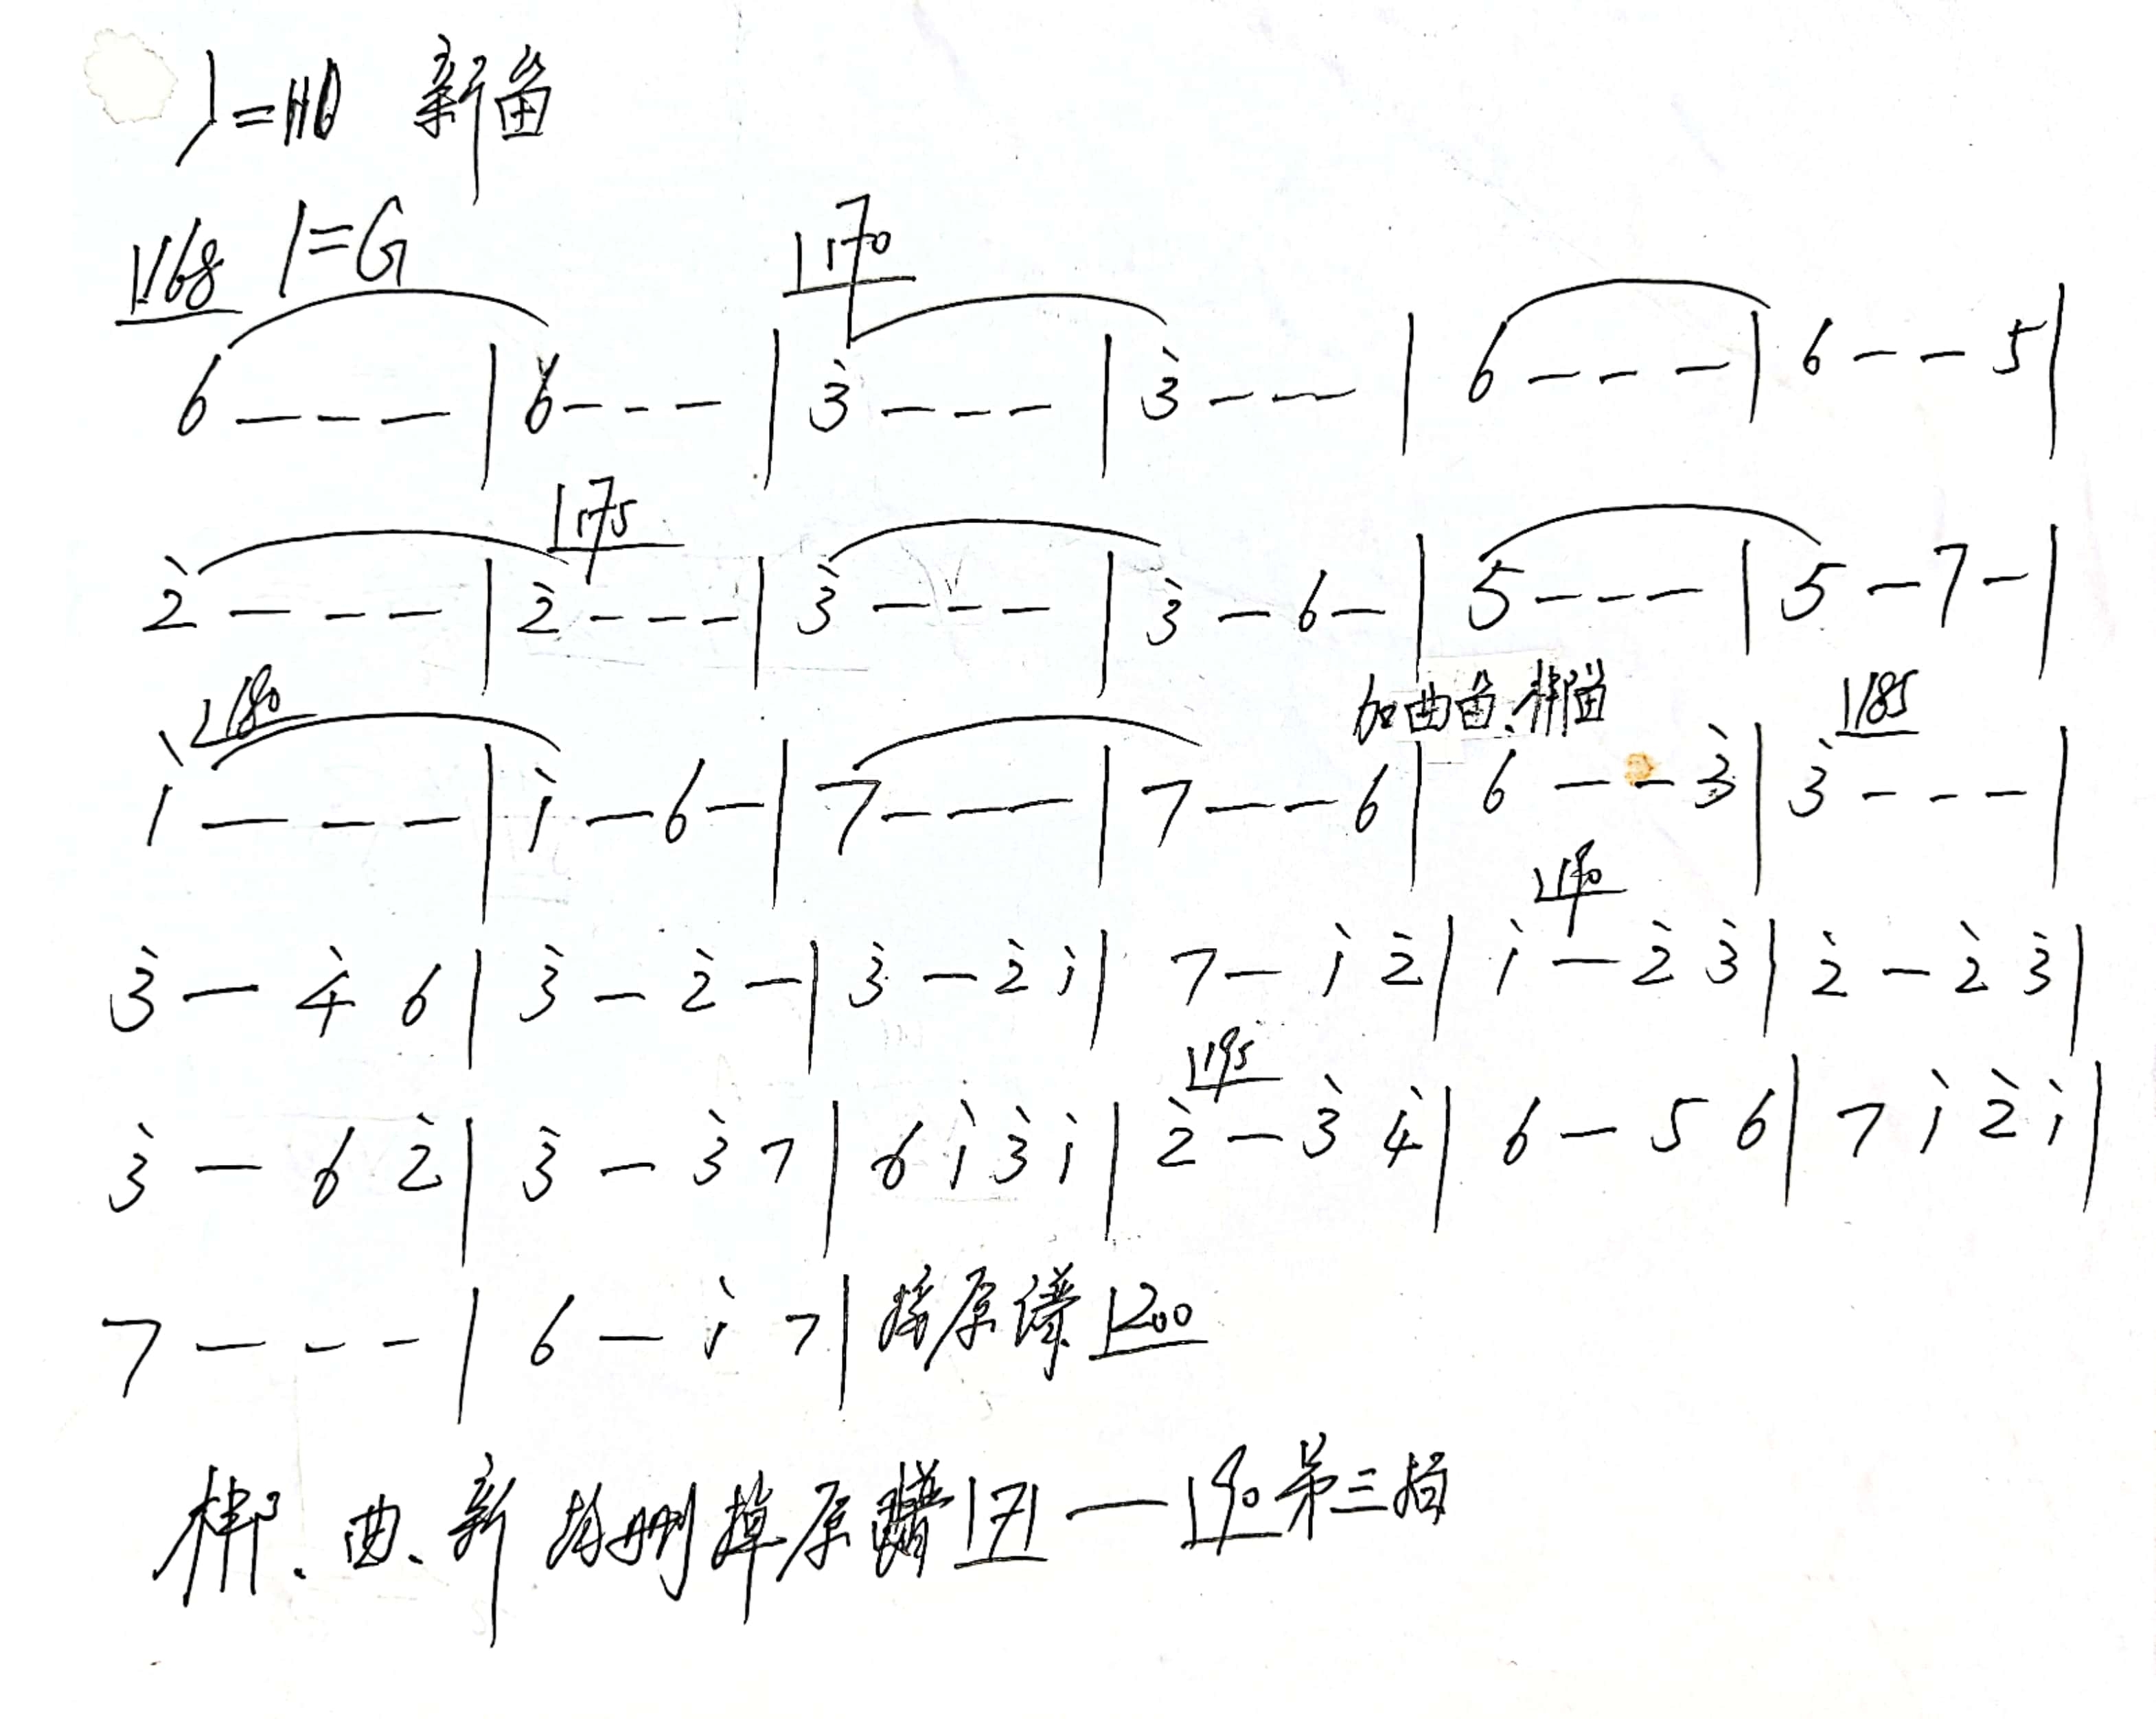 ♩=110 新笛
168 1=G 170
6 - - - | 6 - - - | 3̇ - - - | 3̇ - - - | 6 - - - | 6 - - 5 |
175
2̇ - - - | 2̇ - - - | 3̇ - - - | 3̇ - 6 - | 5 - - - | 5 - 7 - |
180 加曲笛、梆笛 185
1̇ - - - | 1̇ - 6 - | 7 - - - | 7 - - 6 | 6 - - 3̇ | 3̇ - - - |
190
3̇ - 4̇ 6 | 3̇ - 2̇ - | 3̇ - 2̇ 1̇ | 7 - 1̇ 2̇ | 1̇ - 2̇ 3̇ | 2̇ - 2̇ 3̇ |
195
3̇ - 6 2̇ | 3̇ - 3̇ 7 | 6 1̇ 3̇ 1̇ | 2̇ - 3̇ 4̇ | 6 - 5 6 | 7 1̇ 2̇ 1̇ |
7 - - - | 6 - 1̇ 7 | 接原谱 200
梆、曲、新 均删掉原谱 171 — 190 第三拍